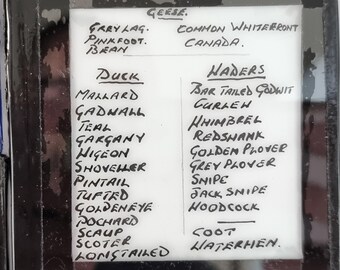 GEESE.
GREYLAG. COMMON WHITEFRONT
PINKFOOT. CANADA.
BEAN
DUCK
MALLARD
GADWALL
TEAL
GARGANY
WIGEON
SHOVELLER
PINTAIL
TUFTED
GOLDENEYE
POCHARD
SCAUP
SCOTER
LONGTAILED
WADERS
BAR TAILED GODWIT
CURLEW
WHIMBREL
REDSHANK
GOLDEN PLOVER
GREY PLOVER
SNIPE
JACK SNIPE
WOODCOCK
COOT
WATERHEN.